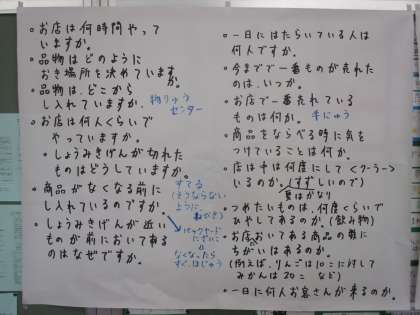 ○お店は何時間やって
いますか。
○品物はどのように
おき場所を決めていますか。
○品物は、どこから
し入れていますか。
物りゅう
センター
○お店は何人くらいで
やっていますか。
○しょうみきげんが切れた
ものはどうしていますか。
すてる
(そうならない
ように
ねびき)
○商品がなくなる前に
し入れているのですか。
バックヤード
にずいこ
なくなったら
すぐ、はじゅう
○しょうみきげんが近い
ものが前においてある
のはなぜですか。
○一日にはたらいている人は
何人ですか。
○今までで一番ものが売れた
のは、いつか。
○お店で一番売れている
ものは何か。
牛にゅう
○商品をならべる時に気を
つけていることは何か。
○店は千は何度にしてクーラー
いるのか。(すずしいので)
夏はかなり
○つめたいものは、何度くらいで
ひやしてあるのか。(飲み物)
○お店においてある商品の数に
ちがいはあるのか。
(例えば、りんごは10こに対して
みかんは20こ など)
○一日に何人お客さんが来るのか。